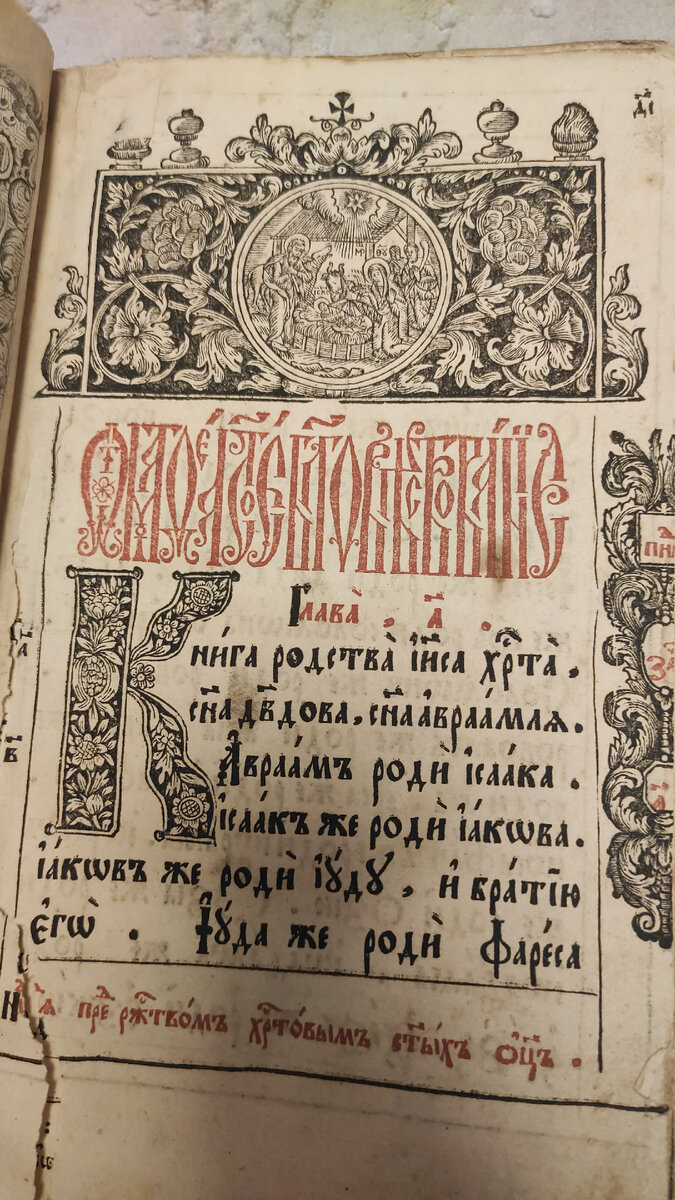 д҃і
Ѿ МАТѲЕ́А СТ҃О́Е БЛГ҃ОВѢСТВОВА́НЇЕ
Глава̀ . а҃ .
Кни́га родства̀ і҆и҃са хрⷭ҇та̀ ,
сн҃а дв҃дова , сн҃а а҆враа́млѧ .
А҆враа́мъ родѝ і҆саа́ка .
і҆саа́къ же родѝ і҆а́кѡва .
і҆а́кѡвъ же родѝ і҆ꙋ́дꙋ , и҆ бра́тїю
є҆гѡ̀ . І҆ꙋ́да же родѝ Фаре́са
пре рⷤтво́мъ хрⷭ҇то́вымъ ст҃ы́хъ ѻ҆ц҃ъ .